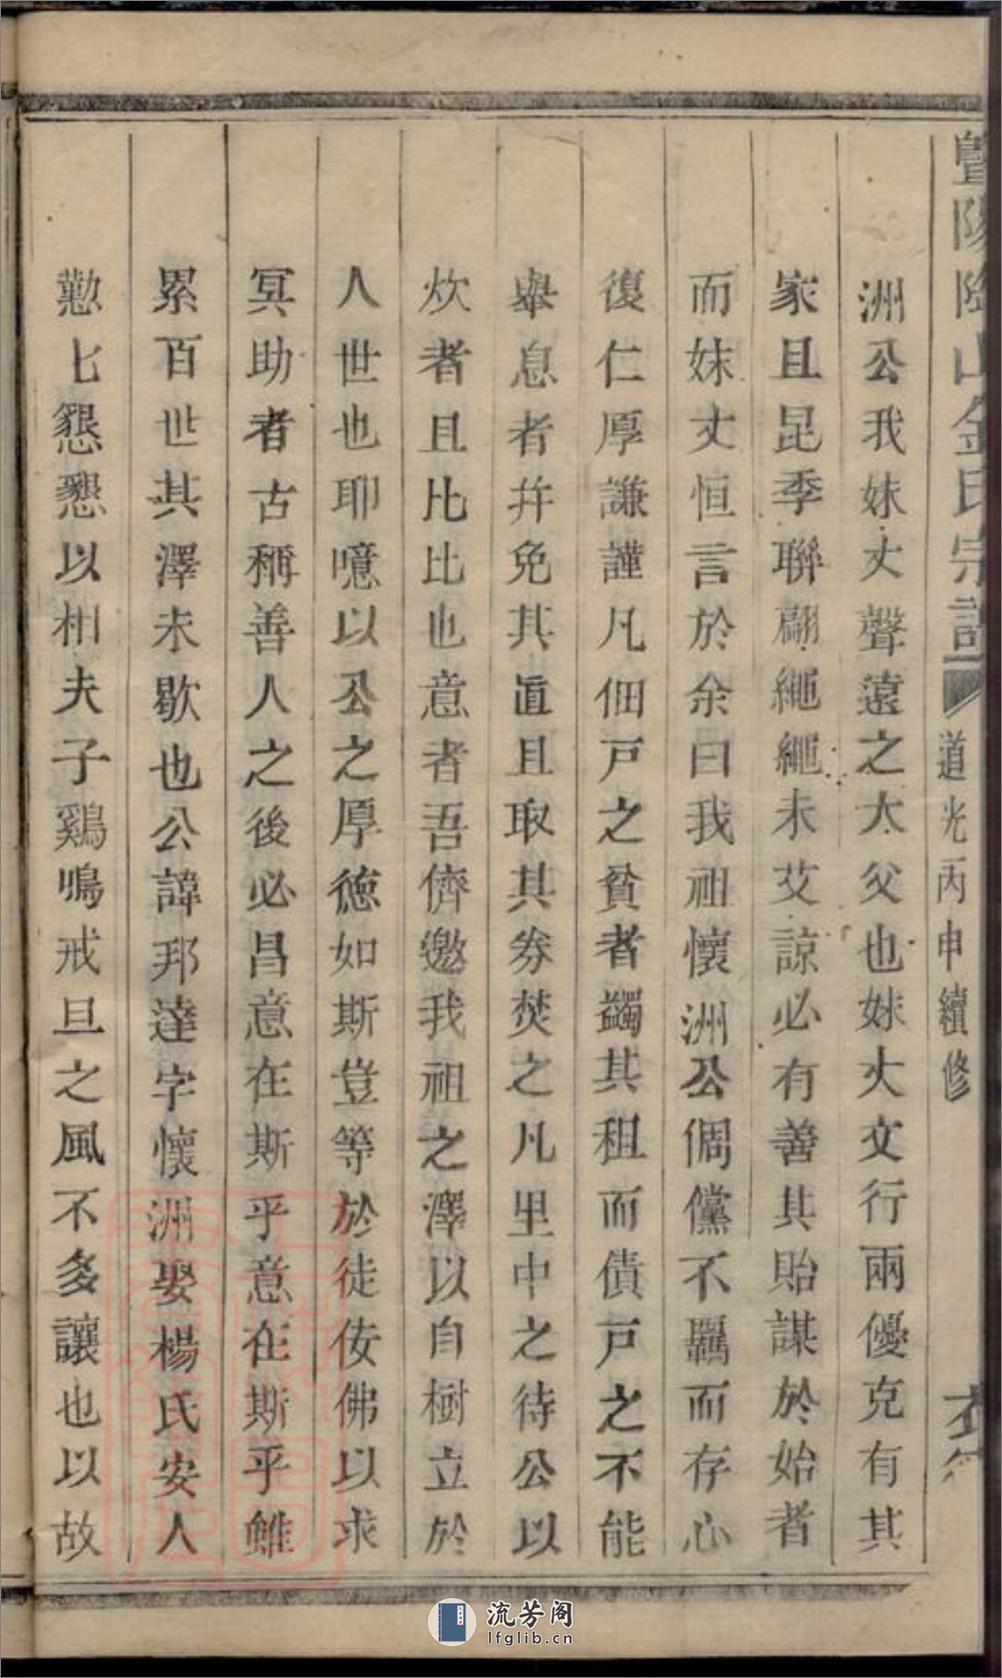 暨陽陰山金氏宗譜 道光丙申續修
洲公我妹丈聲遠之大父也妹丈文行兩優克有其
家且昆季聯翩繩繩未艾諒必有善其貽謀於始者
而妹丈恒言於余曰我祖懷洲公倜儻不羈而存心
復仁厚謙謹凡佃戸之貧者蠲其租而債戸之不能
舉息者并免其直且取其券焚之凡里中之待公以
炊者且比比也意者吾儕邀我祖之澤以自樹立於
人世也耶噫以公之厚德如斯豈等於徒佞佛以求
冥助者古稱善人之後必昌意在斯乎意在斯乎雖
累百世其澤未歇也公諱邦達字懷洲娶楊氏安人
懃七懇懇以相夫子鷄鳴戒旦之風不多讓也以故
流芳阁
lfglib.cn